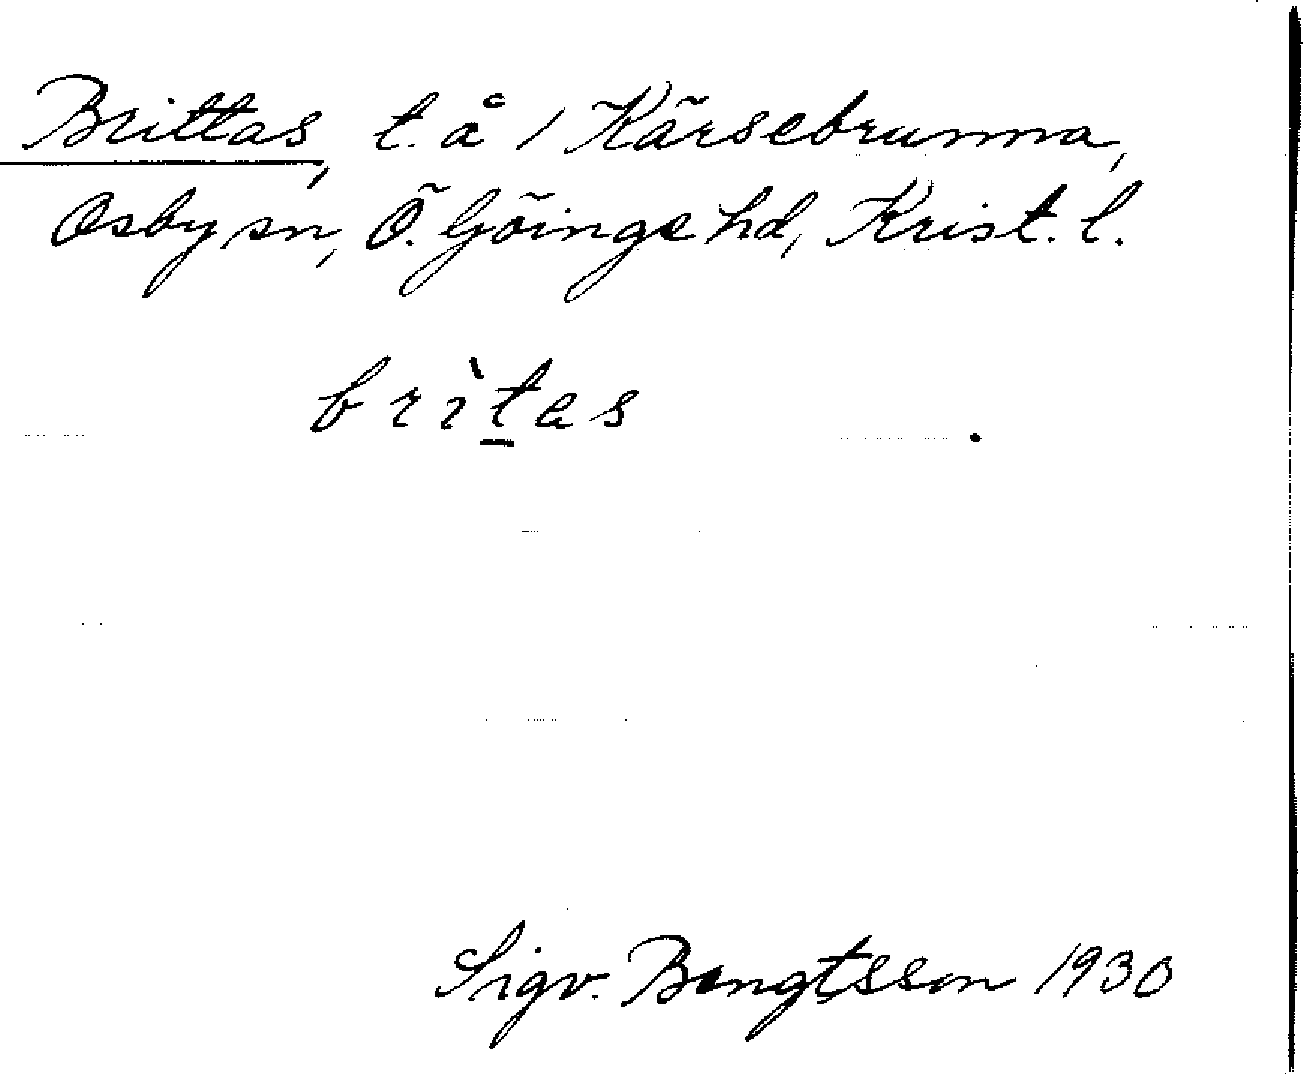 Brittas, t. å 1 Kärsebrunna,
Osby sn, Ö. Göinge hd, Krist. l.
brìt̲as
Sigv. Bengtsson 1930